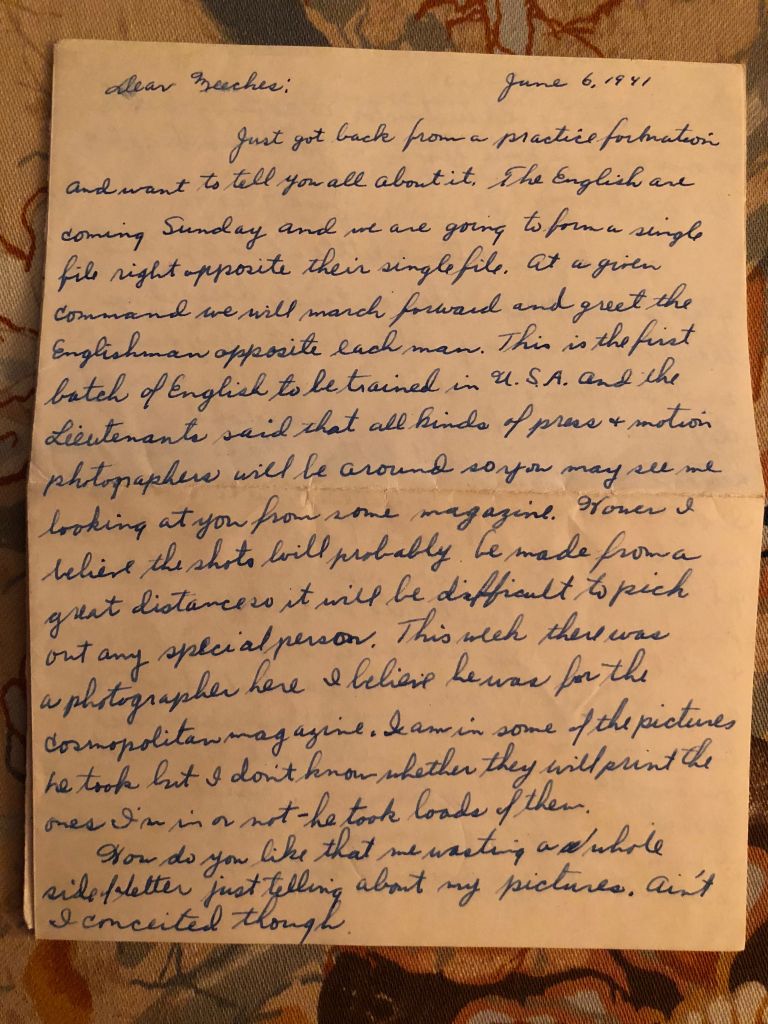 Dear Meeches:
June 6, 1941
Just got back from a practice formation
and want to tell you all about it. The English are
coming Sunday and we are going to form a single
file right opposite their single file. At a given
command we will march forward and greet the
Englishman opposite each man. This is the first
batch of English to be trained in U.S.A. and the
Lieutenants said that all kinds of press + motion
photographers will be around so you may see me
looking at you from some magazine. Hower I
believe the shots will probably be made from a
great distance so it will be difficult to pick
out any special person. This week there was
a photographer here I believe he was for the
Cosmopolitan magazine. I am in some of the pictures
he took but I don't know whether they will print the
ones I'm in or not - he took loads of them.
How do you like that me wasting a whole
side of letter just telling about my pictures. Ain't
I conceited though.